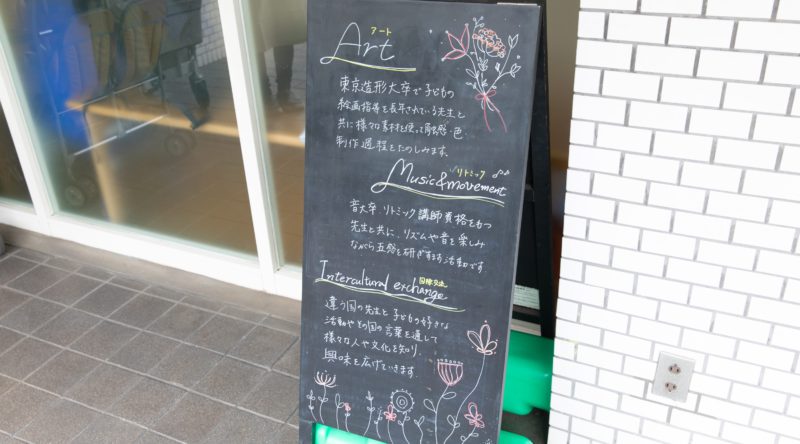 アート
Art
東京造形大卒で子どもの
絵画指導を長年されている先生と
共に様々な素材を使って感触・色・
制作過程をたのしみます。
リトミック
Music&movement
音大卒、リトミック講師資格をもつ
先生と共に、リズムや音を楽しみ
ながら五感を研ぎすます活動です
国際交流
Intercultural exchange
違う国の先生と子どもの好きな
活動やその国の言葉を通して
様々な人や文化を知り、
興味を広げていきます。